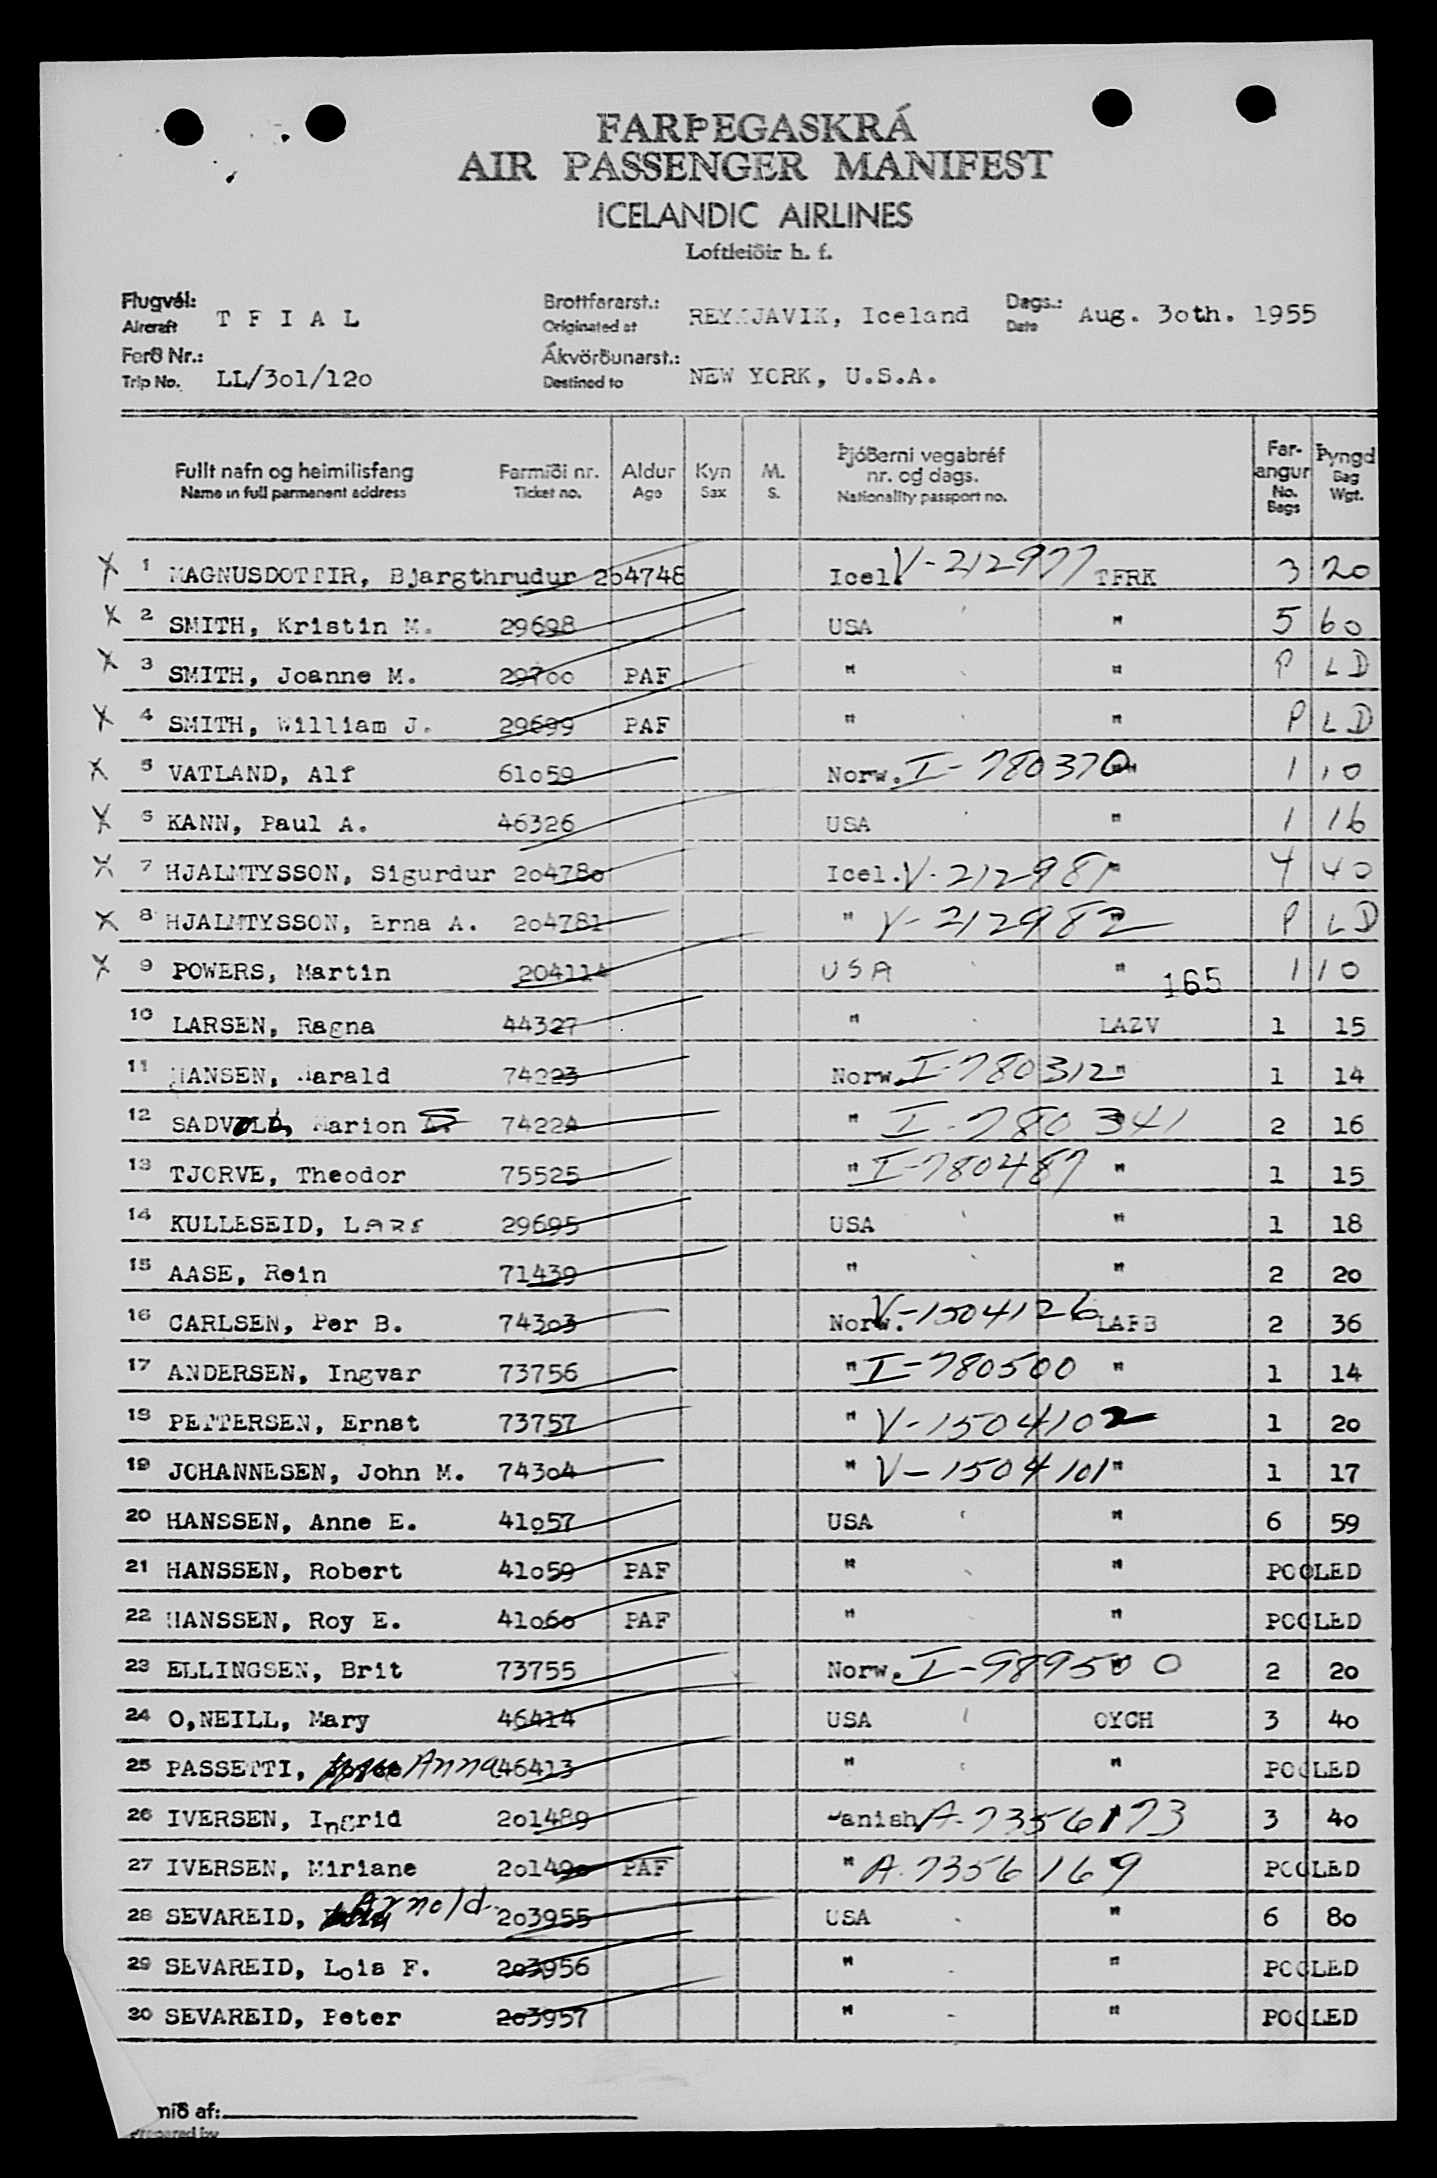 FARÞEGASKRÁ
AIR PASSENGER MANIFEST
ICELANDIC AIRLINES
Loftleiðir h. f.
Flugvél: Aircraft T F I A L Brottfararst.: Originated at REYKJAVIK, Iceland Dags.: Date Aug. 3oth. 1955
Ferð Nr.: Trip No. LL/3o1/12o Ákvörðunarst.: Destined to NEW YORK, U.S.A.
Fullt nafn og heimilisfang Farmiði nr. Aldur Kyn M. Þjóðerni vegabréf nr. og dags. Far-angur Þyngd
Name in full parmanent address Ticket no. Age Sex S. Nationality passport no. No. Bags Bag Wgt.
X 1 MAGNUSDOTTIR, Bjargthrudur 2o4748 Icel. V-212977 TFRK 3 20
X 2 SMITH, Kristin M. 29698 USA " 5 60
X 3 SMITH, Joanne M. 297oo PAF " " P L D
X 4 SMITH, William J. 29699 PAF " " P L D
X 5 VATLAND, Alf 61o59 Norw. I-780370 " 1 10
X 6 KANN, Paul A. 46326 USA " 1 16
X 7 HJALMTYSSON, Sigurdur 2o478o Icel. V-212981 " 4 40
X 8 HJALMTYSSON, Erna A. 2o4781 " V-212982 " P L D
X 9 POWERS, Martin 2o4114 USA " 165 1 10
10 LARSEN, Ragna 44327 " LAZV 1 15
11 HANSEN, Harald 74223 Norw. I-780312 " 1 14
12 SADVOLD, Marion S 74224 " I-780341 2 16
13 TJORVE, Theodor 75525 " I-780487 " 1 15
14 KULLESEID, Lars 29695 USA " 1 18
15 AASE, Rein 71439 " " 2 2o
16 CARLSEN, Per B. 743o3 Norw. V-1504126 LAPB 2 36
17 ANDERSEN, Ingvar 73756 " I-780500 " 1 14
18 PETTERSEN, Ernst 73757 " V-1504102 1 2o
19 JOHANNESEN, John M. 743o4 " V-1504101 " 1 17
20 HANSSEN, Anne E. 41o57 USA " 6 59
21 HANSSEN, Robert 41o59 PAF " " POOLED
22 HANSSEN, Roy E. 41o6o PAF " " POOLED
23 ELLINGSEN, Brit 73755 Norw. I-989500 " 2 2o
24 O,NEILL, Mary 46414 USA OYCH 3 4o
25 PASSETTI, Anna 46413 " " POOLED
26 IVERSEN, Ingrid 2o1489 Danish A-7356173 " 3 4o
27 IVERSEN, Miriane 2o149o PAF " A.7356169 " POOLED
28 SEVAREID, Arnold 2o3955 USA " 6 8o
29 SEVAREID, Lois F. 2o3956 " " POOLED
30 SEVAREID, Peter 2o3957 " " POOLED
mið af:
Prepared by